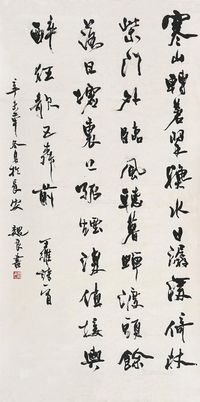 寒山轉蒼翠秋水日潺湲倚杖
柴門外臨風聽暮蟬渡頭餘
落日墟裏上孤煙復值接輿
醉狂歌五柳前
王維詩一首
辛未年冬月於長安 魏良書